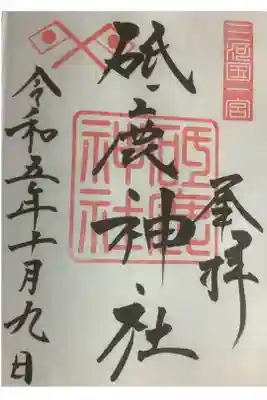 三河国一宮
登拝
砥鹿神社
砥鹿神社
令和五年十月九日